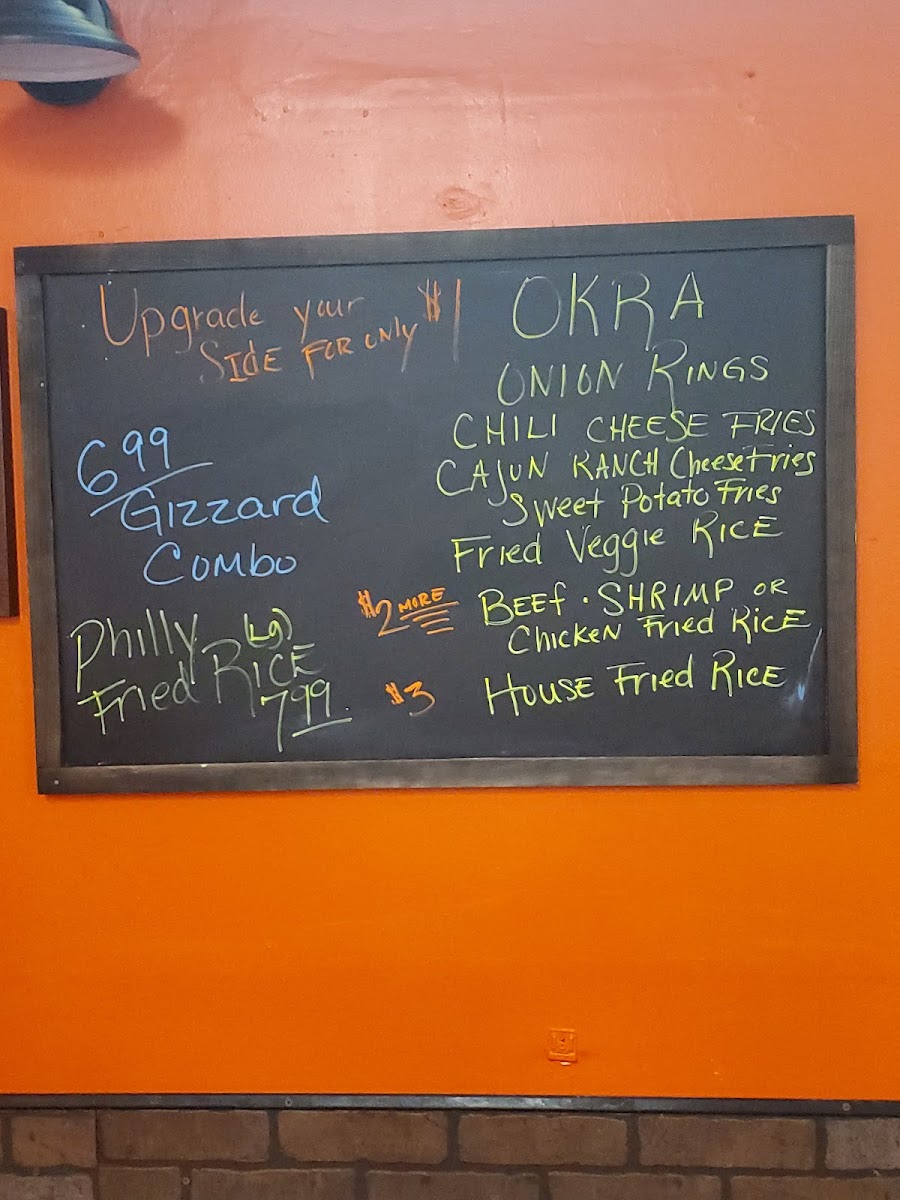 Upgrade your $1
SIdE FOR ONLY
6 99
Gizzard
Combo
Philly (Lg)
Fried RICE
7 99
OKRA
ONION RINGS
CHILI CHEESE FRIES
CAJUN RANCH Cheese Fries
Sweet Potato Fries
Fried Veggie RICE
$2 MORE BEEF · SHRIMP OR
Chicken Fried RICE
$3 HOUSE Fried RICE